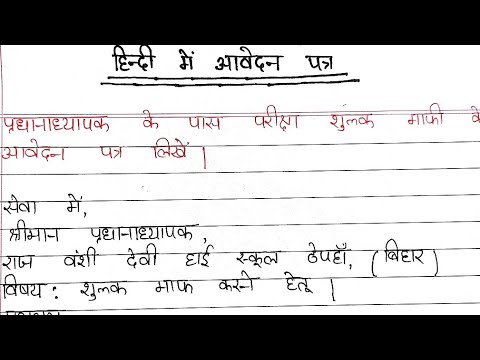 हिन्दी में आवेदन पत्र
प्रधानाध्यापक के पास परीक्षा शुलक माफी के
आवेदन पत्र लिखें।
सेवा में,
श्रीमान प्रधानाध्यापक,
राज वंशी देवी हाई स्कूल ठेपहाँ, (बिहार)
विषय: शुलक माफ करने हेतू।